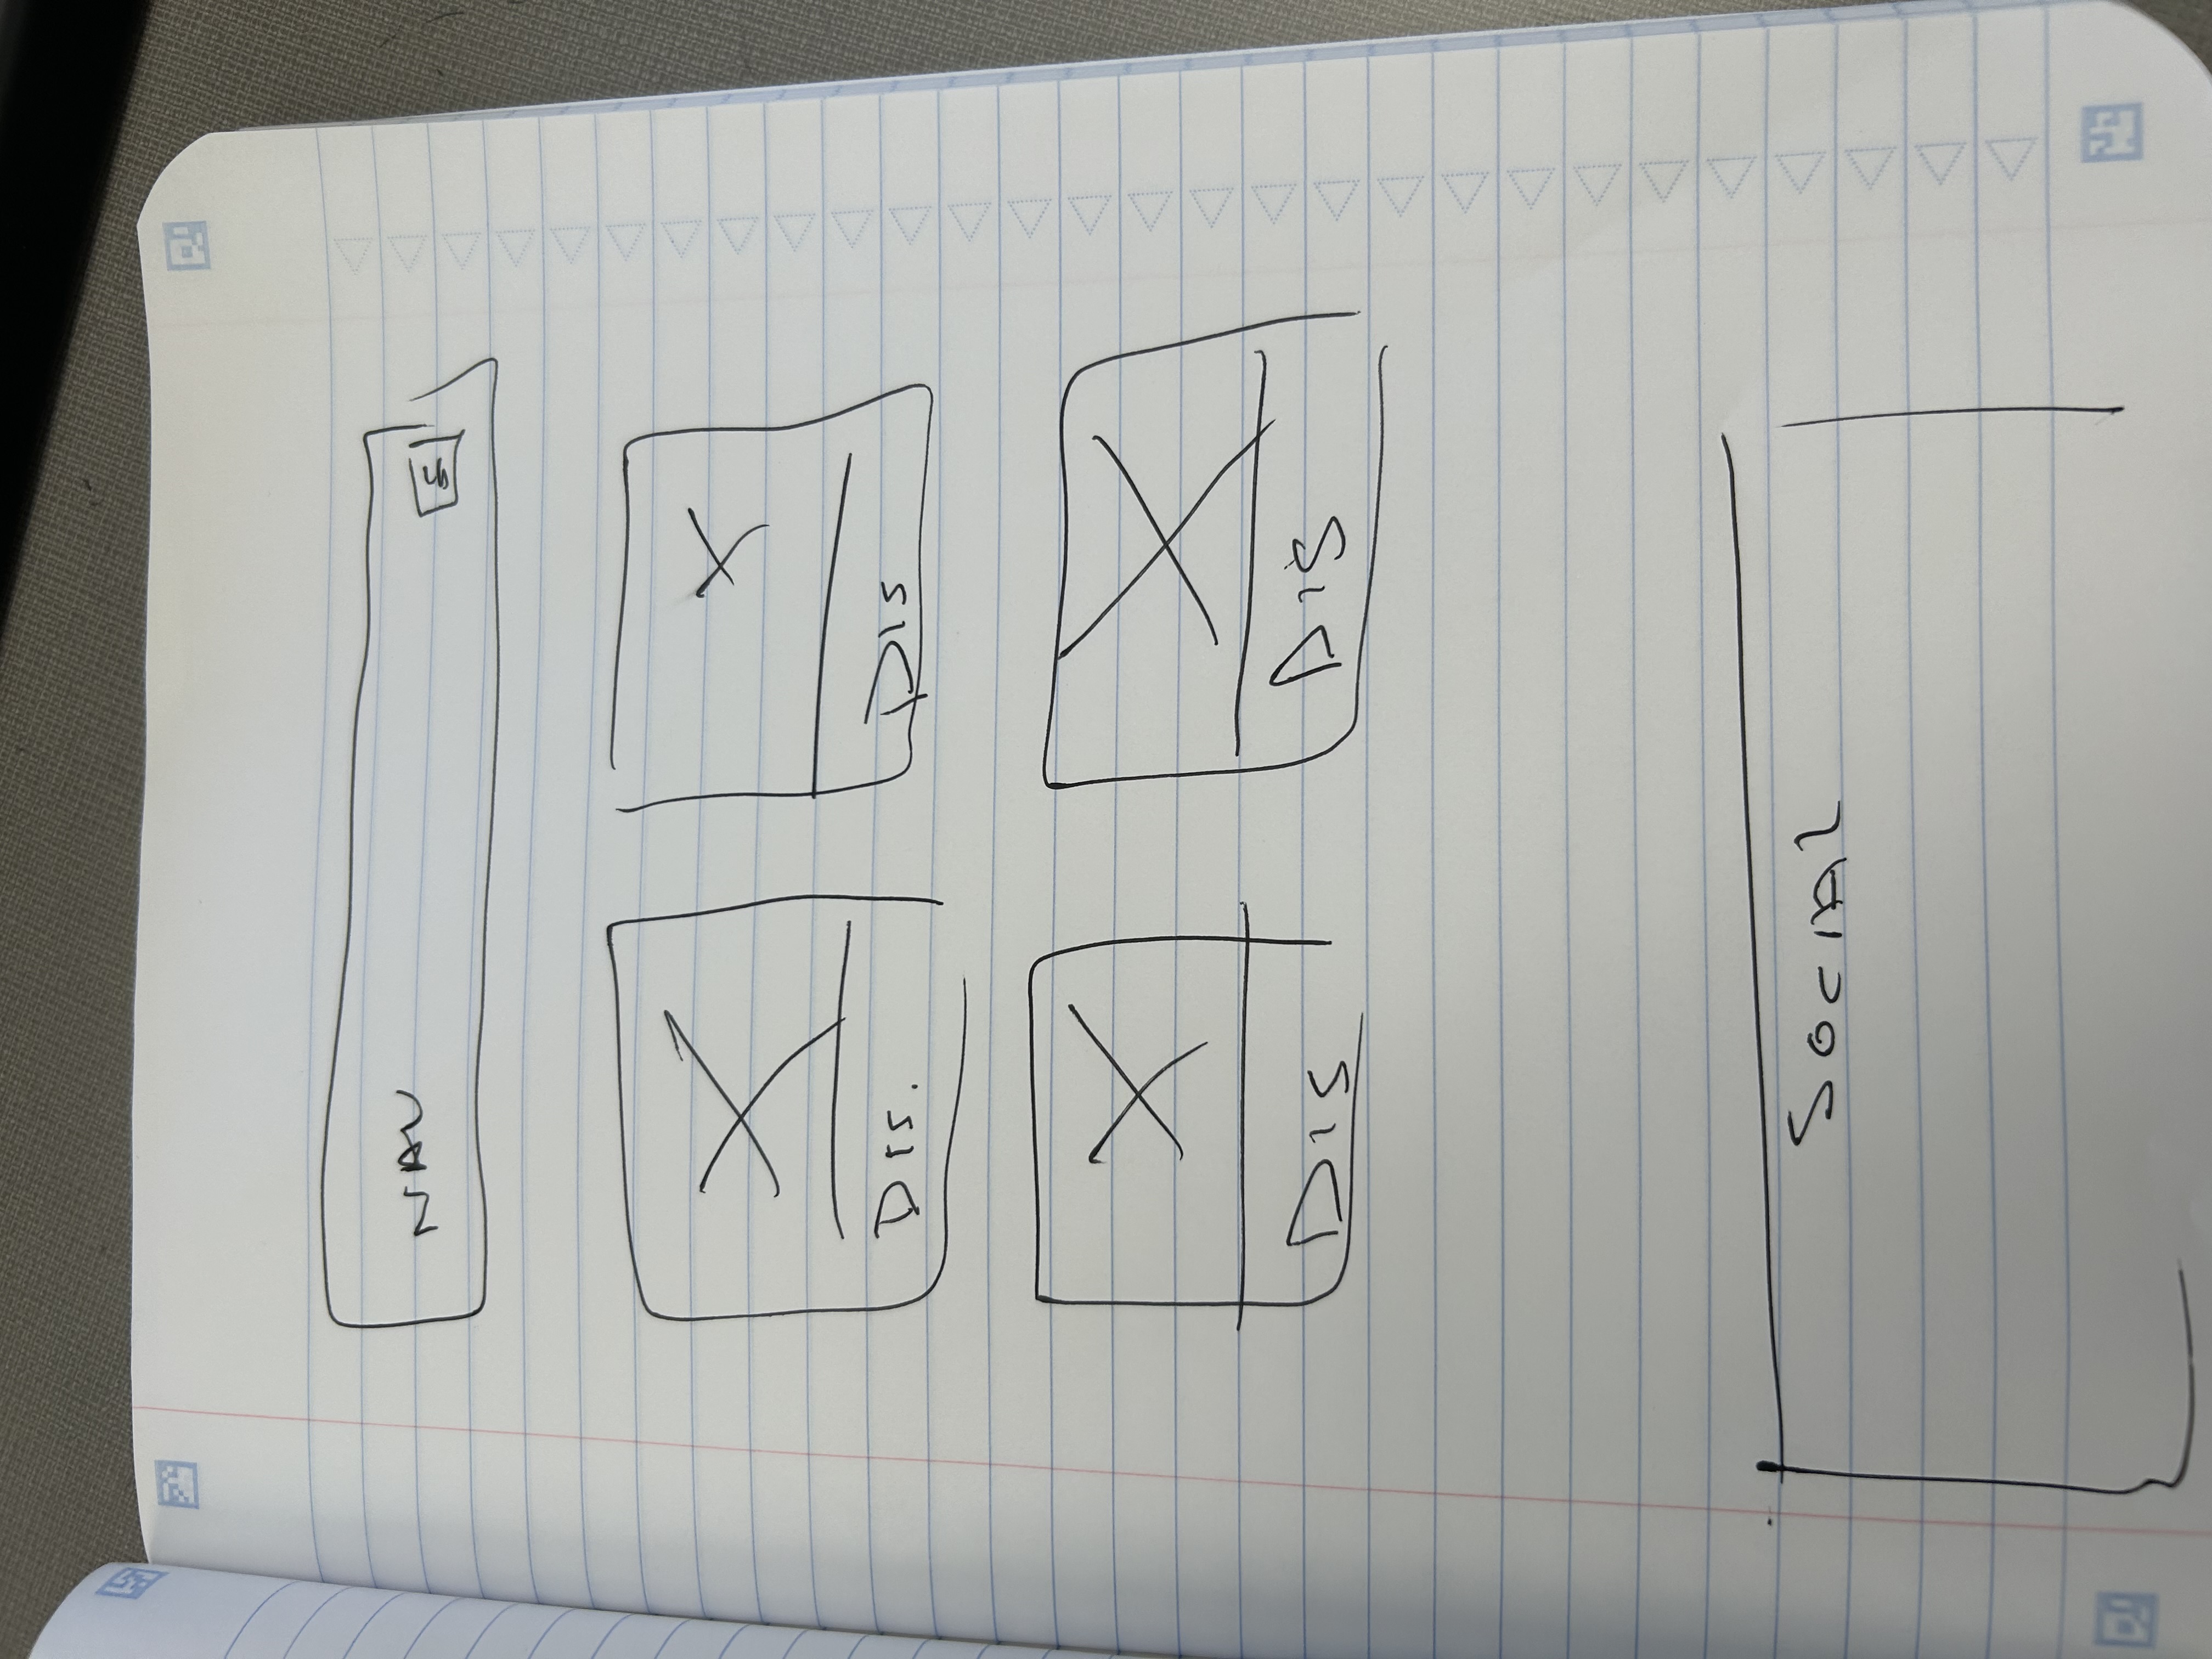 NAV
DIS.
DIS
DIS
DIS
SOCIAL